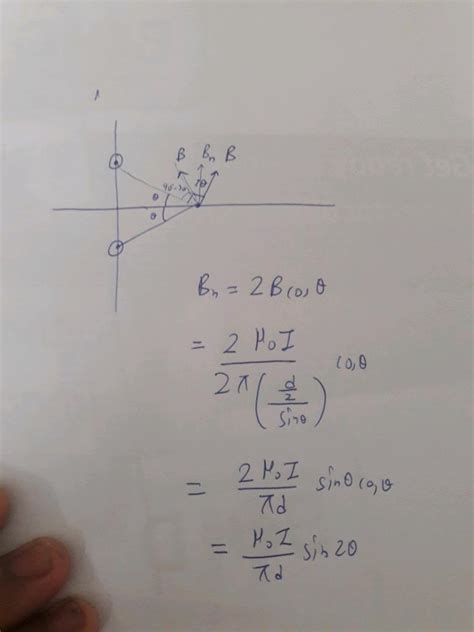 B Bn B
θ
θ
Bn = 2B cosθ
= 2 μ₀I / 2π((d/2)/sinθ) cosθ
= 2μ₀I / πd sinθ cosθ
= μ₀I / πd sin2θ